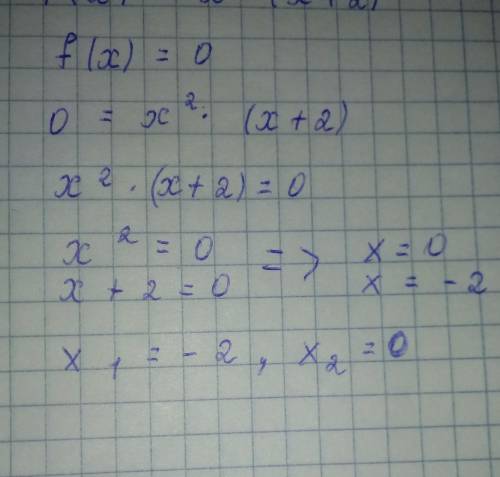 f(x) = 0
0 = x²· (x + 2)
x² · (x + 2) = 0
x² = 0 => x = 0
x + 2 = 0 x = -2
x₁ = -2, x₂ = 0